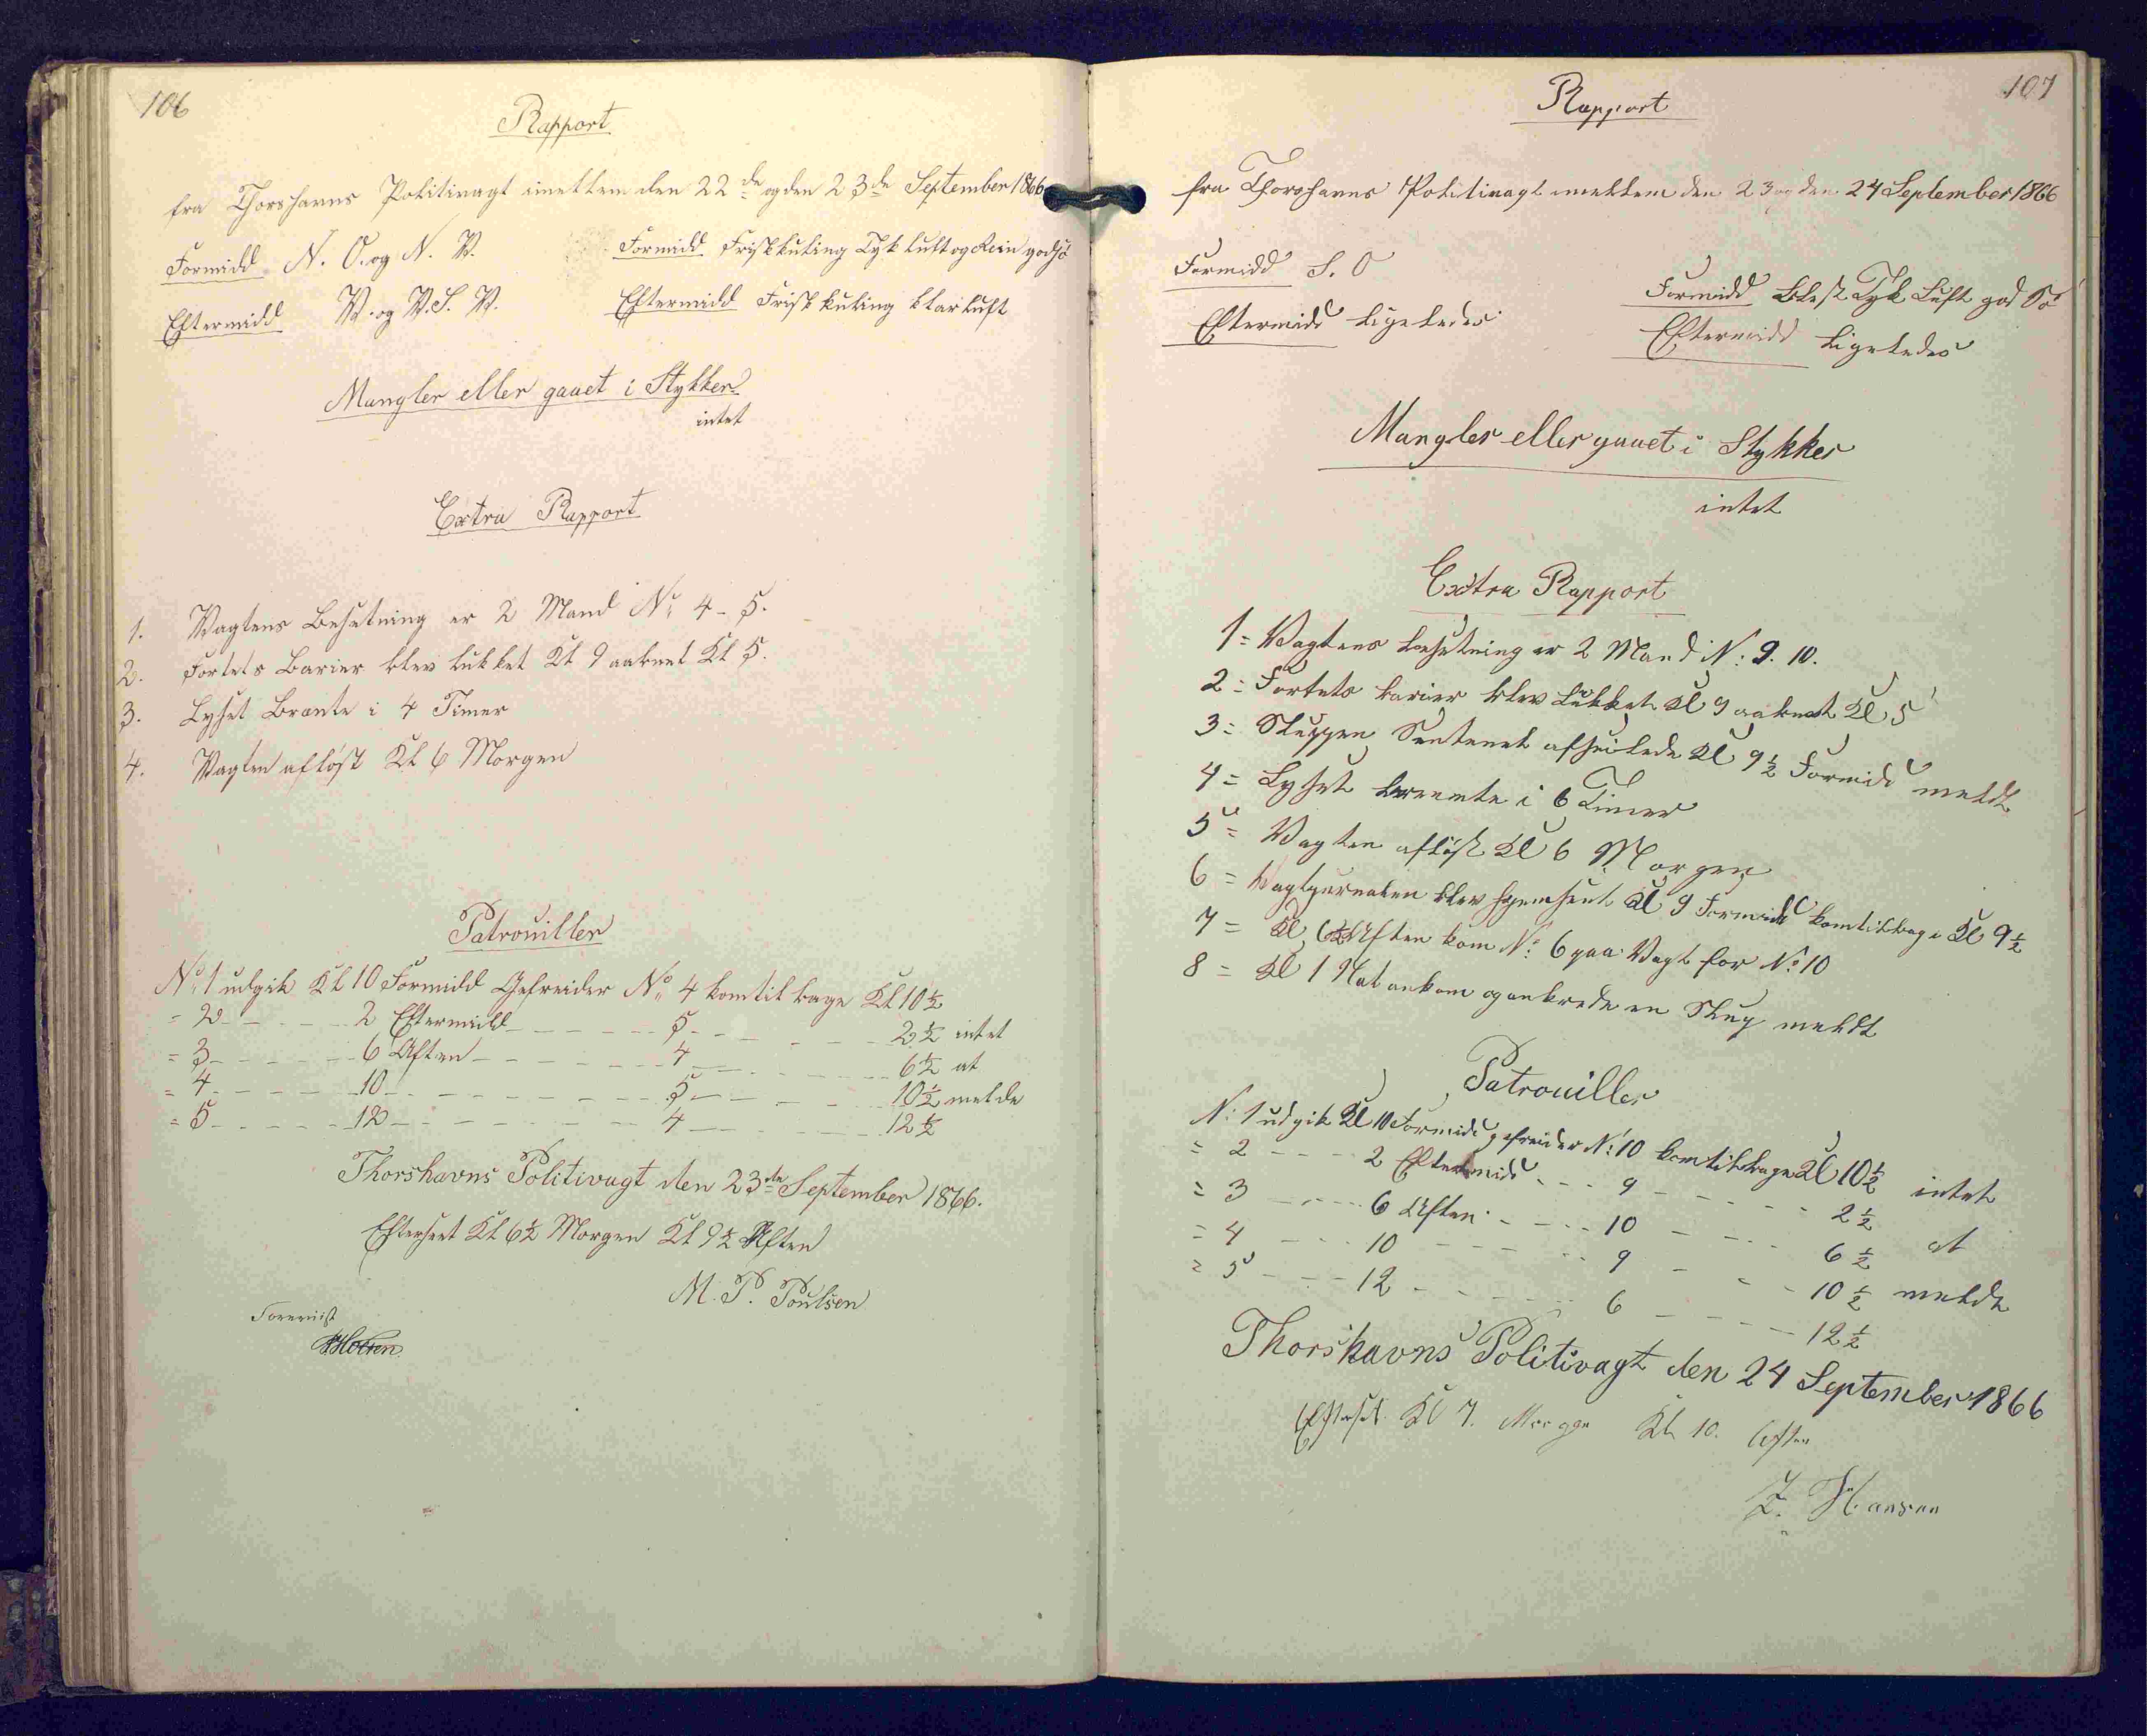 106
Rapport
fra Thorshavns Politivagt imellem den 22de og den 23de September 1866
Formidd N. O. og N. V. Formidd Frisk kuling Tyk luft og Rein god sö
Eftermidd V. og V. S. V. Eftermidd Frisk kuling klar luft
Mangler eller gaaet i Stykker
intet
Extra Rapport
1. Vagtens Besetning er 2 Mand No 4 - 5.
2. Fortets Barier blev lukket Kl 9 aabnet Kl 5.
3. Lyset Brænte i 4 Timer
4. Vagten aflöst Kl 6 Morgen
Patrouiller
No 1 udgik Kl 10 Formidd Gefreider No 4 kom tilbage Kl 10½
= 2 - - - - 2 Eftermidd - - - - - 5 - - - - - 2½ intet
= 3 - - - - 6 Aften - - - - - 4 - - - - - 6½ at
= 4 - - - - 10 - - - - - 5 - - - - - 10½ melde
= 5 - - - - 12 - - - - - 4 - - - - - 12½
Thorshavns Politivagt den 23de September 1866.
Efterseet Kl 6½ Morgen Kl 9½ Aften
M. P. Poulsen
Foreviist
107
Rapport
fra Thorshavns Politivagt imellem den 23 og den 24 September 1866
Formidd S. O Formidd Blest Tyk Luft god Sö
Eftermidd ligeledes Eftermidd ligeledes
Mangler eller gaaet i Stykker
intet
Extra Rapport
1 = Vagtens besetning er 2 Mand N: 9. 10.
2 = Fortets barier blev lukket Kl 9 aabnet Kl 5
3 = Sluppen Sentenel afseilede Kl 9½ Formidd meldt
4 = Lyset brennte i 6 Timer
5 = Vagten aflöst Kl 6 Morgen
6 = Vagtjurnalen blev hjemsent Kl 9 Formidd kom tilbage Kl 9½
7 = Kl 6½ Aften kom N: 6 paa Vagt for N: 10
8 = Kl 1 Nat ankom og ankrede en Slup meldt
Patrouiller
N: 1 udgik Kl 10 Formidd gefreider N: 10 kom tilbage Kl 10½
= 2 - - - - 2 Eftermidd - - - 9 - - - - 2½ intet
= 3 - - - - 6 Aften - - - - 10 - - - - 6½ at
= 4 - - - 10 - - - - 9 - - - 10½ meldt
= 5 - - - 12 - - - - 6 - - - - 12½
Thorshavns Politivagt den 24 September 1866
Efterset Kl 7. Morgen Kl 10. Aften
Z. Hansen